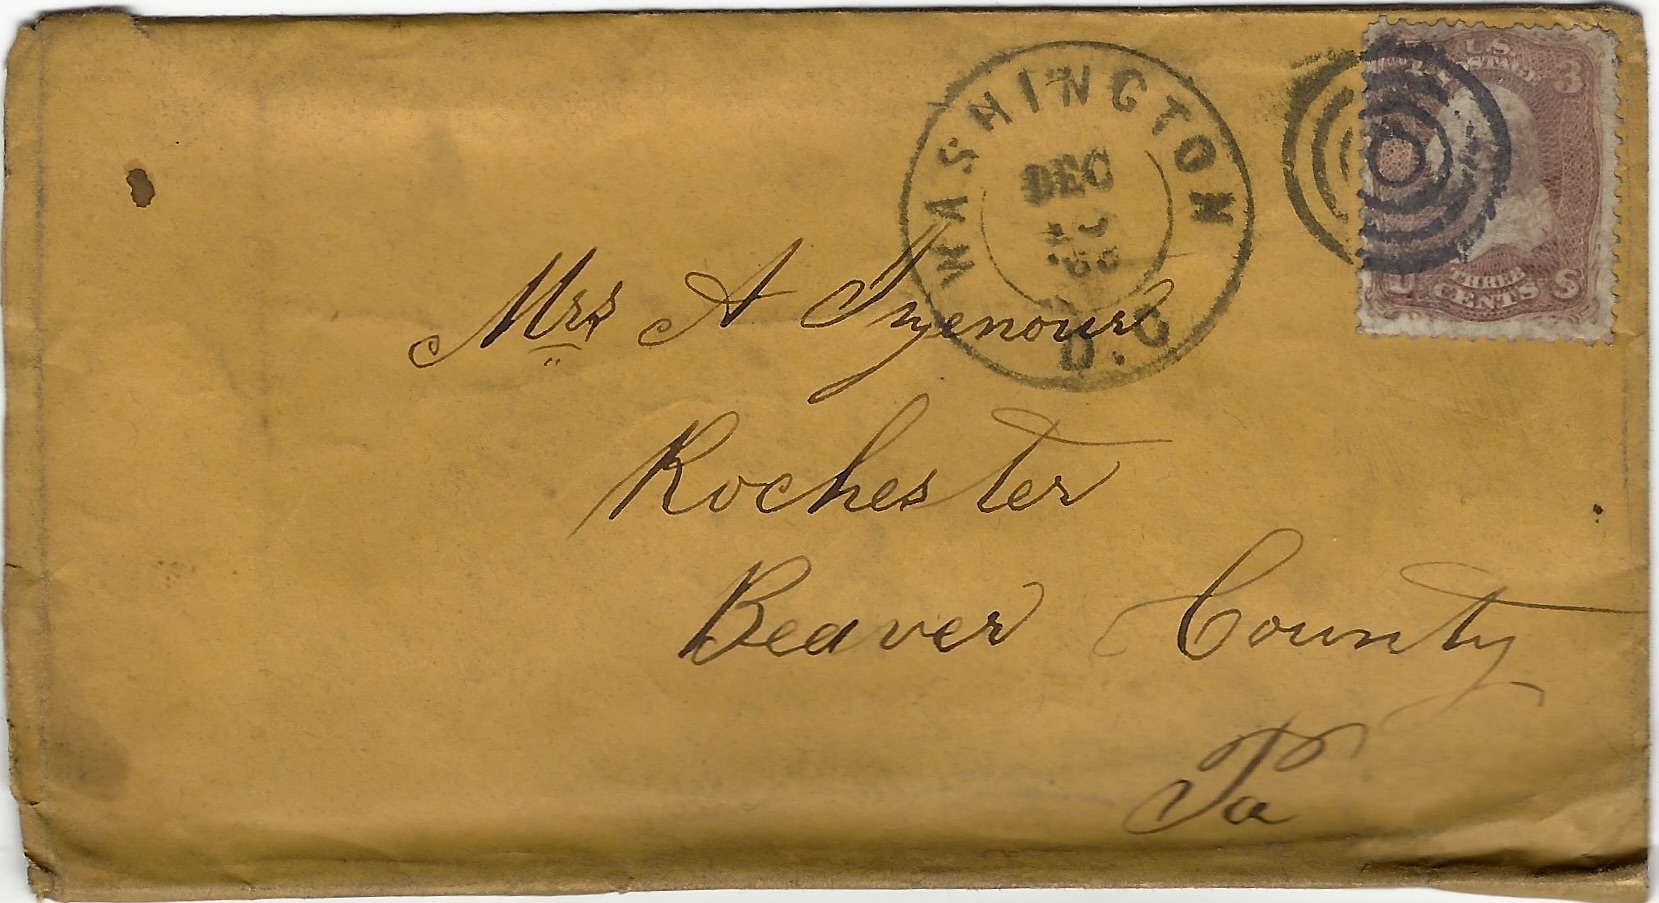 WASHINGTON
DEC
D.C
U.S.
POSTAGE
3
THREE
CENTS
U S
Mrs A
Rochester
Beaver County
Pa